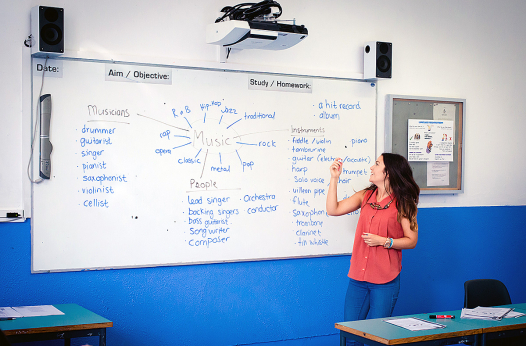 Date:
Aim / Objective:
Study / Homework:
Musicians
· drummer
· guitarist
· singer
· pianist
· saxophonist
· violinist
· cellist
R&B
Hip Hop
Jazz
traditional
rock
pop
metal
classic
opera
rap
Music
People
· lead singer
· backing singers
· bass guitarist
· song writer
· composer
· Orchestra
· conductor
· a hit record
· album
Instruments
fiddle / violin
piano
tambourine
guitar (electric / acoustic)
harp
trumpet
Solo voice
choir
uillean pipe
flute
saxophone
trombone
clarinet
· tin whistle